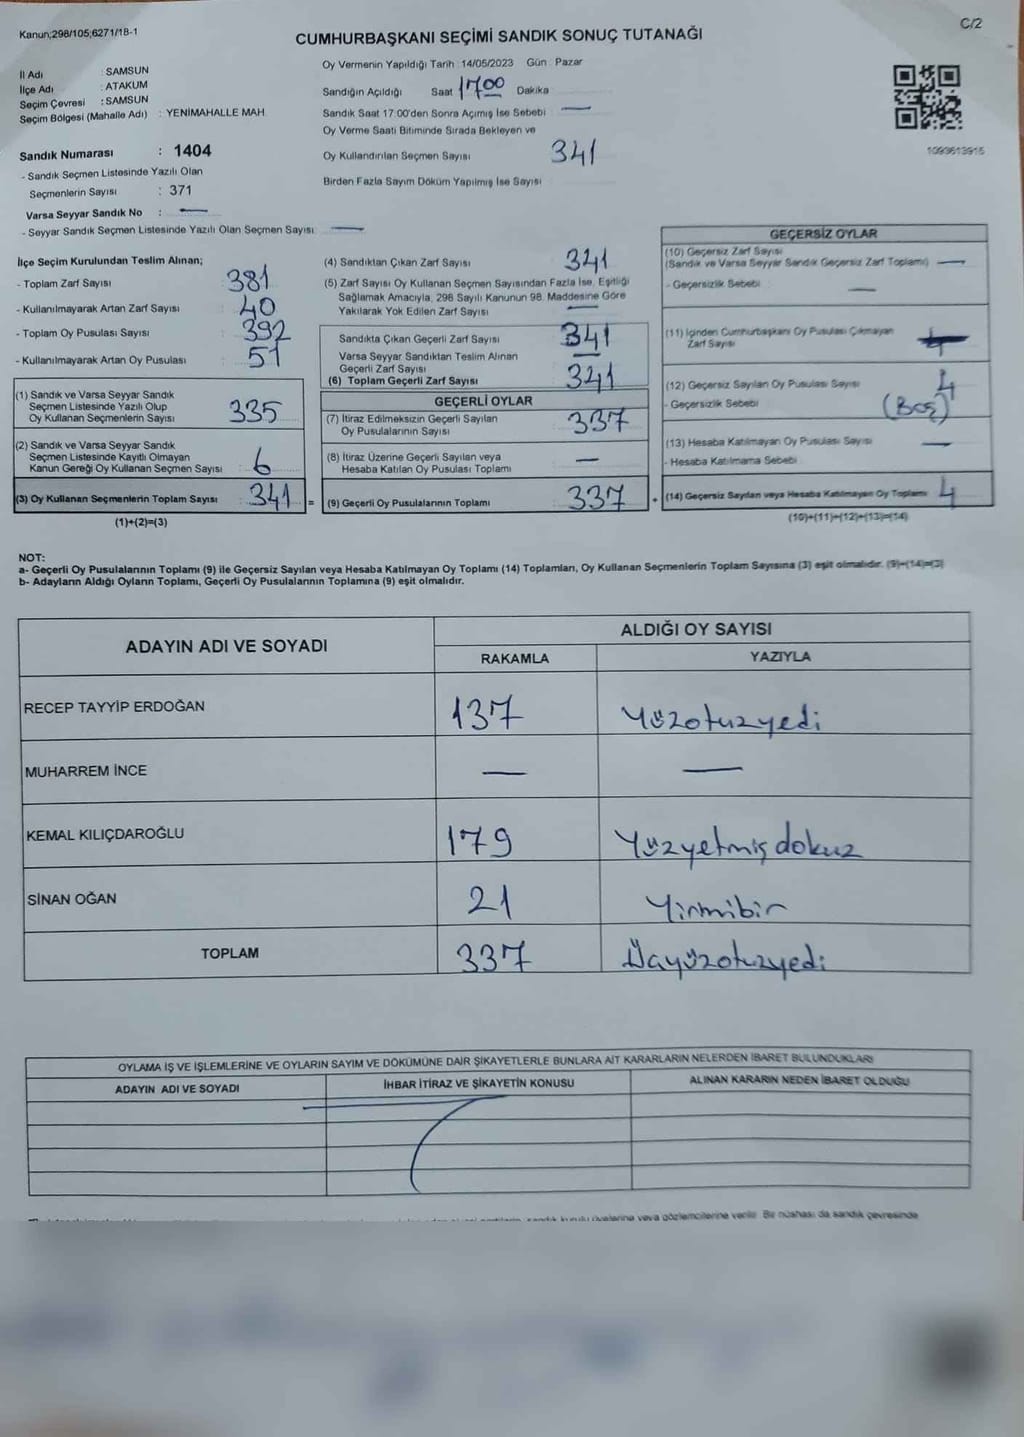 Kanun;298/105;6271/18-1
C/2
CUMHURBAŞKANI SEÇİMİ SANDIK SONUÇ TUTANAĞI
İl Adı : SAMSUN
İlçe Adı : ATAKUM
Seçim Çevresi : SAMSUN
Seçim Bölgesi (Mahalle Adı) : YENİMAHALLE MAH.
Sandık Numarası : 1404
- Sandık Seçmen Listesinde Yazılı Olan
Seçmenlerin Sayısı : 371
Varsa Seyyar Sandık No : —
- Seyyar Sandık Seçmen Listesinde Yazılı Olan Seçmen Sayısı —
Oy Vermenin Yapıldığı Tarih : 14/05/2023 Gün : Pazar
Sandığın Açıldığı Saat 17 00 Dakika
Sandık Saat 17:00'den Sonra Açımış İse Sebebi —
Oy Verme Saati Bitiminde Sırada Bekleyen ve
Oy Kullandırılan Seçmen Sayısı 341
Birden Fazla Sayım Döküm Yapılmış İse Sayısı
1093613915
İlçe Seçim Kurulundan Teslim Alınan;
- Toplam Zarf Sayısı : 381
- Kullanılmayarak Artan Zarf Sayısı : 40
- Toplam Oy Pusulası Sayısı : 392
- Kullanılmayarak Artan Oy Pusulası : 51
(1) Sandık ve Varsa Seyyar Sandık
Seçmen Listesinde Yazılı Olup
Oy Kullanan Seçmenlerin Sayısı 335
(2) Sandık ve Varsa Seyyar Sandık
Seçmen Listesinde Kayıtlı Olmayan
Kanun Gereği Oy Kullanan Seçmen Sayısı : 6
(3) Oy Kullanan Seçmenlerin Toplam Sayısı 341 =
(1)+(2)=(3)
(4) Sandıktan Çıkan Zarf Sayısı 341
(5) Zarf Sayısı Oy Kullanan Seçmen Sayısından Fazla İse, Eşitliği
Sağlamak Amacıyla, 298 Sayılı Kanunun 98. Maddesine Göre
Yakılarak Yok Edilen Zarf Sayısı —
Sandıkta Çıkan Geçerli Zarf Sayısı 341
Varsa Seyyar Sandıktan Teslim Alınan —
Geçerli Zarf Sayısı
(6) Toplam Geçerli Zarf Sayısı 341
GEÇERLİ OYLAR
(7) İtiraz Edilmeksizin Geçerli Sayılan
Oy Pusulalarının Sayısı 337
(8) İtiraz Üzerine Geçerli Sayılan veya
Hesaba Katılan Oy Pusulası Toplamı —
(9) Geçerli Oy Pusulalarının Toplamı 337 +
GEÇERSİZ OYLAR
(10) Geçersiz Zarf Sayısı
(Sandık ve Varsa Seyyar Sandık Geçersiz Zarf Toplamı) —
- Geçersizlik Sebebi —
(11) İçinden Cumhurbaşkanı Oy Pusulası Çıkmayan
Zarf Sayısı
(12) Geçersiz Sayılan Oy Pusulası Sayısı 4
- Geçersizlik Sebebi (Boş)
(13) Hesaba Katılmayan Oy Pusulası Sayısı —
- Hesaba Katılmama Sebebi
(14) Geçersiz Sayılan veya Hesaba Katılmayan Oy Toplamı 4
(10)+(11)+(12)+(13)=(14)
NOT:
a- Geçerli Oy Pusulalarının Toplamı (9) ile Geçersiz Sayılan veya Hesaba Katılmayan Oy Toplamı (14) Toplamları, Oy Kullanan Seçmenlerin Toplam Sayısına (3) eşit olmalıdır. (9)+(14)=(3)
b- Adayların Aldığı Oyların Toplamı, Geçerli Oy Pusulalarının Toplamına (9) eşit olmalıdır.
ADAYIN ADI VE SOYADI
ALDIĞI OY SAYISI
RAKAMLA YAZIYLA
RECEP TAYYİP ERDOĞAN 137 Yüzotuzyedi
MUHARREM İNCE — —
KEMAL KILIÇDAROĞLU 179 Yüzyetmiş dokuz
SİNAN OĞAN 21 Yirmibir
TOPLAM 337 Üçyüzotuzyedi
OYLAMA İŞ VE İŞLEMLERİNE VE OYLARIN SAYIM VE DÖKÜMÜNE DAİR ŞİKAYETLERLE BUNLARA AİT KARARLARIN NELERDEN İBARET BULUNDUKLARI
ADAYIN ADI VE SOYADI İHBAR İTİRAZ VE ŞİKAYETİN KONUSU ALINAN KARARIN NEDEN İBARET OLDUĞU
sandık kurulu üyelerine veya gözlemcilerine verilir. Bir nüshası da sandık çevresinde